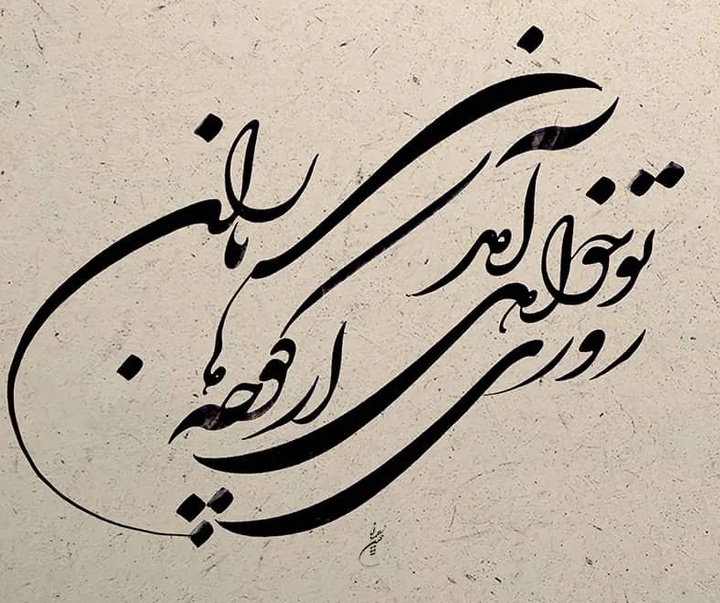 روزی تو خواهی آمد
از کوچه های باران